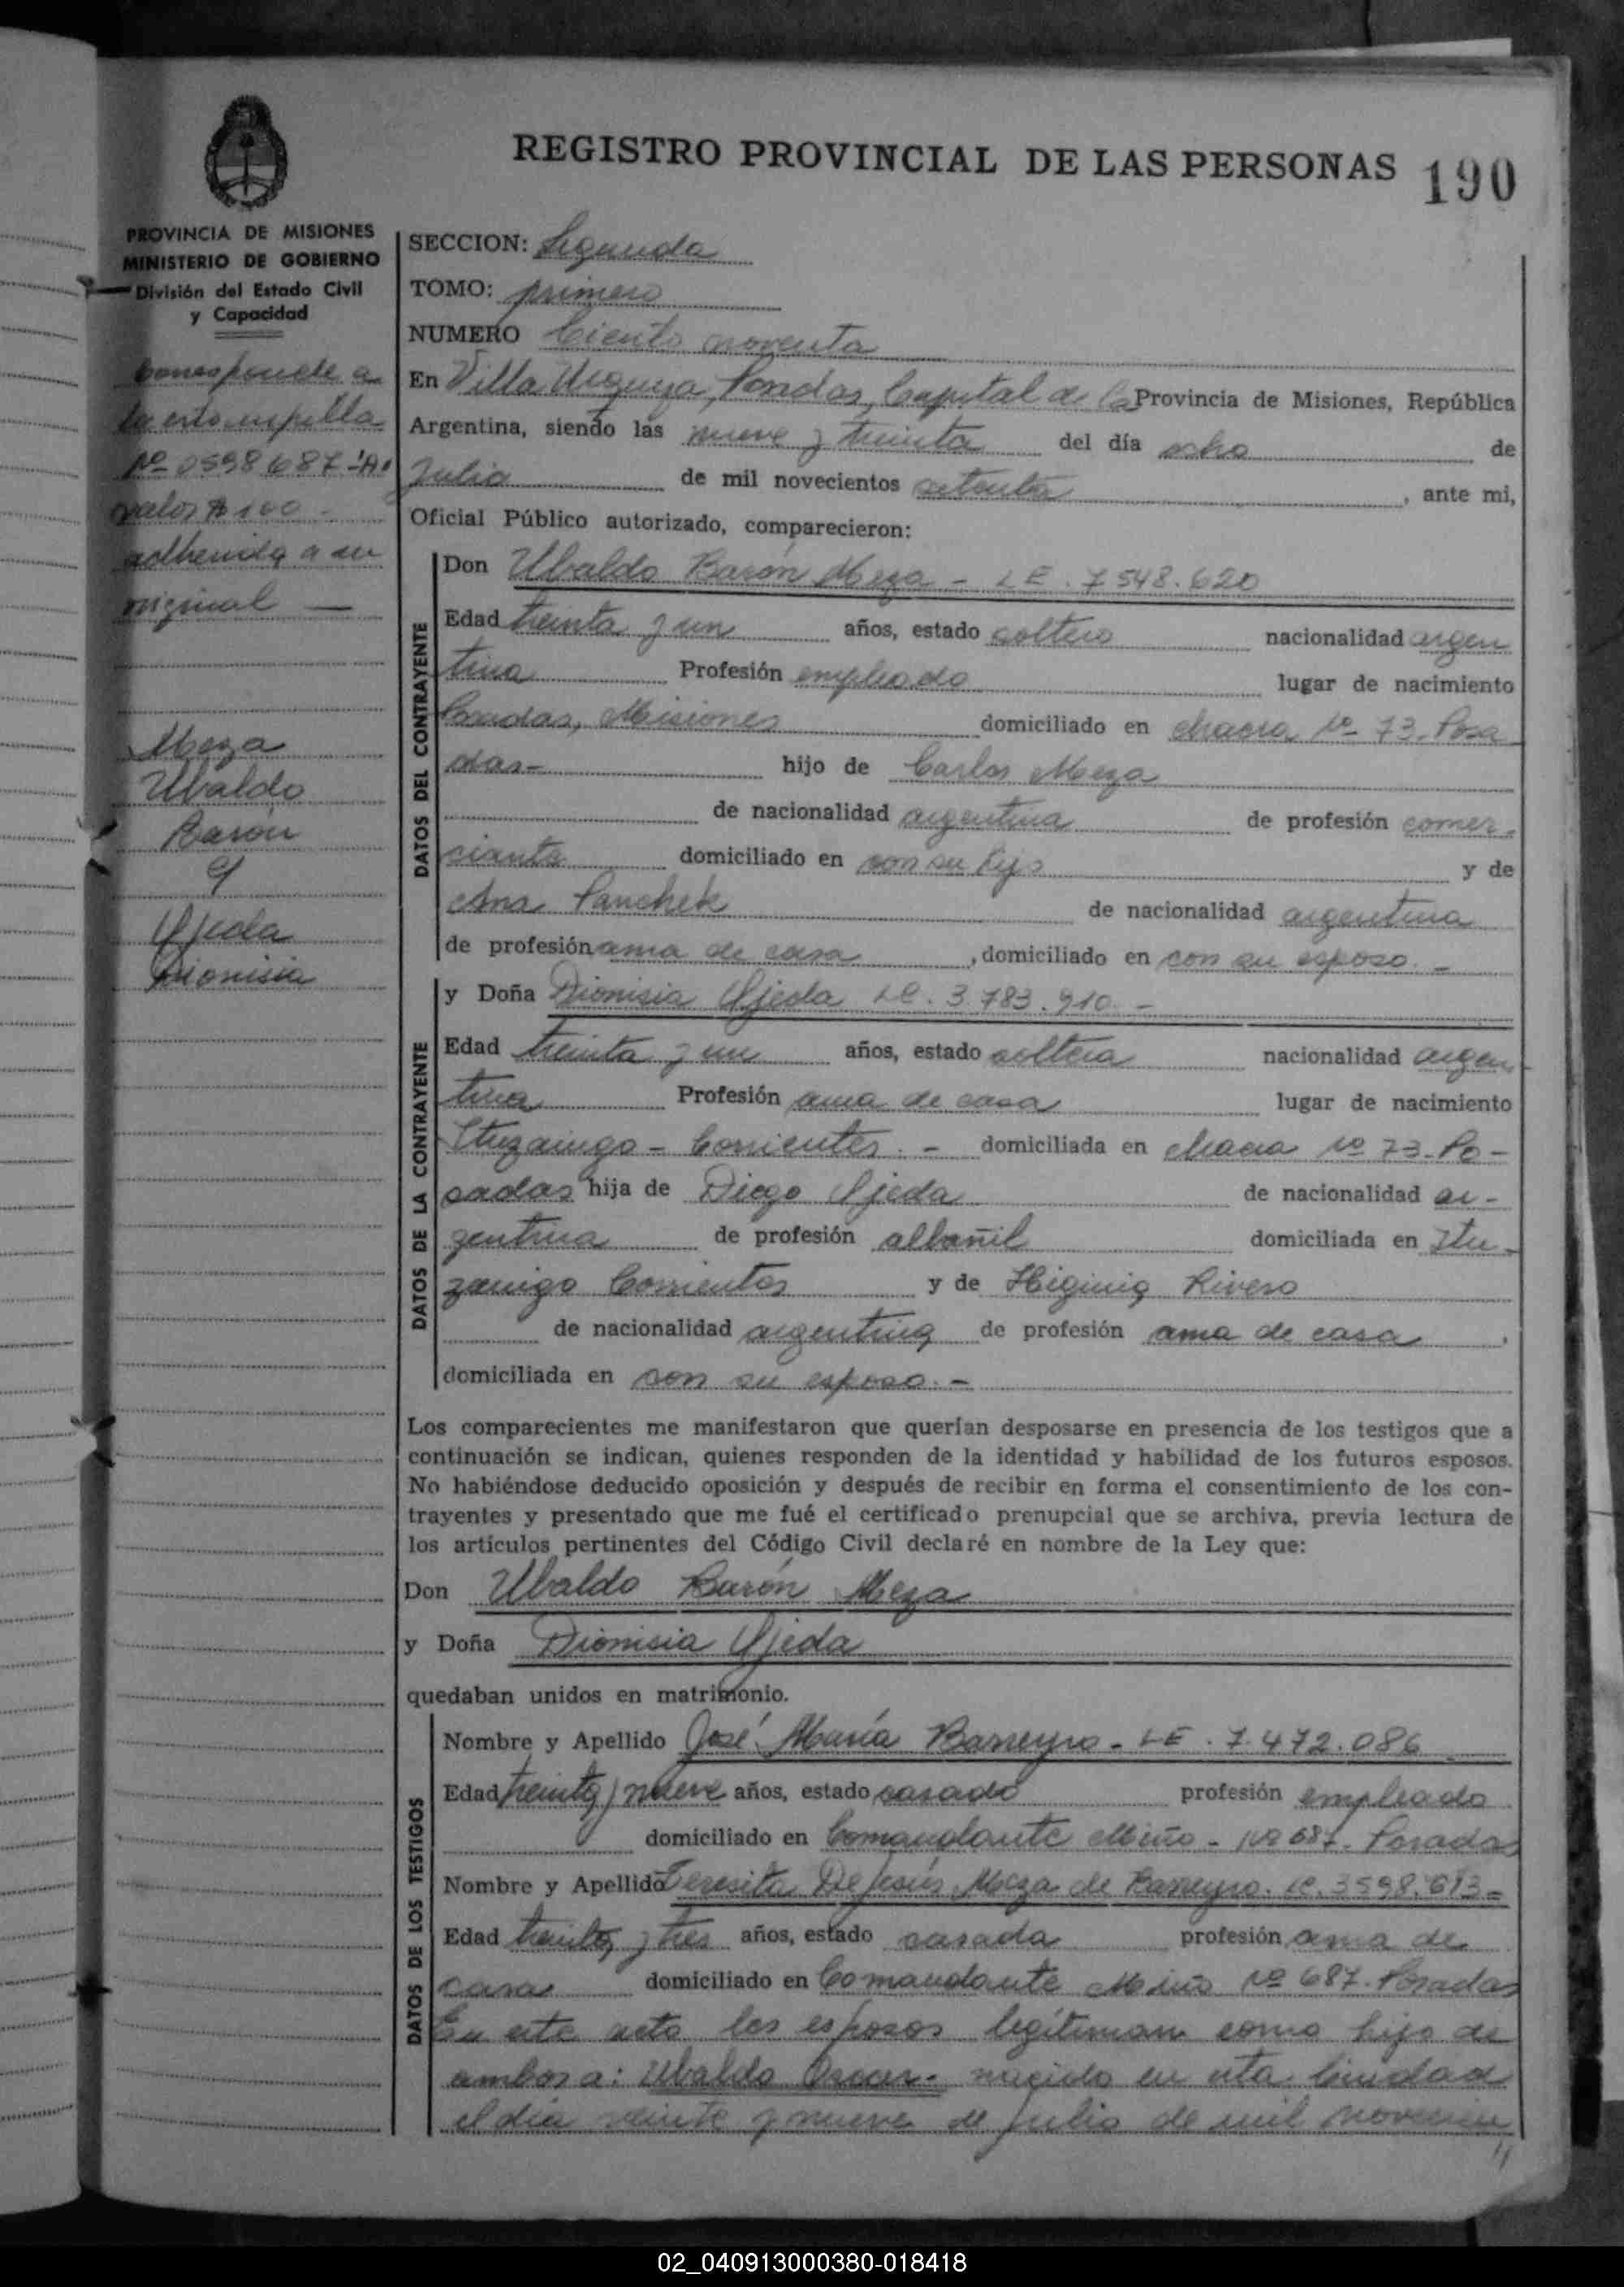 REGISTRO PROVINCIAL DE LAS PERSONAS 190
PROVINCIA DE MISIONES
MINISTERIO DE GOBIERNO
División del Estado Civil
y Capacidad
Corresponde a
la estampilla
Nº 0598687 "A"
valor $ 100 -
adherida a su
original —
Meza
Ubaldo
Barón
y
Ojeda
Dionisia
SECCION: Segunda
TOMO: primero
NUMERO Ciento noventa
En Villa Urquiza, Posadas, Capital de la Provincia de Misiones, República
Argentina, siendo las nueve y treinta del día ocho de
Julio de mil novecientos setenta , ante mi,
Oficial Público autorizado, comparecieron:
DATOS DEL CONTRAYENTE
Don Ubaldo Barón Meza - LE. 7548.620
Edad treinta y un años, estado soltero nacionalidad argen
tina Profesión empleado lugar de nacimiento
Posadas, Misiones domiciliado en chacra Nº 73. Posa
das- hijo de Carlos Meza
de nacionalidad argentina de profesión comer-
ciante domiciliado en con su hijo y de
Ana Panchek de nacionalidad argentina
de profesión ama de casa , domiciliado en con su esposo. -
DATOS DE LA CONTRAYENTE
y Doña Dionisia Ojeda LC. 3.783.910 -
Edad treinta y un años, estado soltera nacionalidad argen-
tina Profesión ama de casa lugar de nacimiento
Ituzaingo - Corrientes. - domiciliada en chacra Nº 73. Po-
sadas hija de Diego Ojeda de nacionalidad ar-
gentina de profesión albañil domiciliada en Itu-
zaingo Corrientes y de Higinia Rivero
de nacionalidad argentina de profesión ama de casa ,
domiciliada en con su esposo. -
Los comparecientes me manifestaron que querían desposarse en presencia de los testigos que a
continuación se indican, quienes responden de la identidad y habilidad de los futuros esposos.
No habiéndose deducido oposición y después de recibir en forma el consentimiento de los con-
trayentes y presentado que me fué el certificado prenupcial que se archiva, previa lectura de
los artículos pertinentes del Código Civil declaré en nombre de la Ley que:
Don Ubaldo Barón Meza
y Doña Dionisia Ojeda
quedaban unidos en matrimonio.
DATOS DE LOS TESTIGOS
Nombre y Apellido José María Barreyro - LE. 7.472.086
Edad treinta y nueve años, estado casado profesión empleado
domiciliado en Comandante Miño - Nº 687. Posadas
Nombre y Apellido Teresita De Jesús Meza de Barreyro. LC. 3598.613-
Edad treinta y tres años, estado casada profesión ama de
casa domiciliado en Comandante Miño Nº 687. Posadas
En este acto los esposos legitiman como hijo de
ambos a: Ubaldo Oscar- nacido en esta Ciudad
el día veinte y nueve de Julio de mil novecien
//
02_040913000380-018418